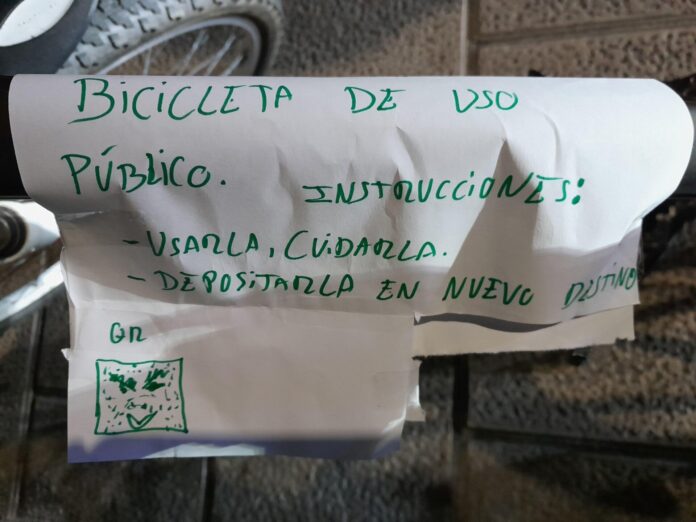 BICICLETA DE USO
PÚBLICO. INSTRUCCIONES:
- USARLA, CUIDARLA.
- DEPOSITARLA EN NUEVO DESTINO
QR